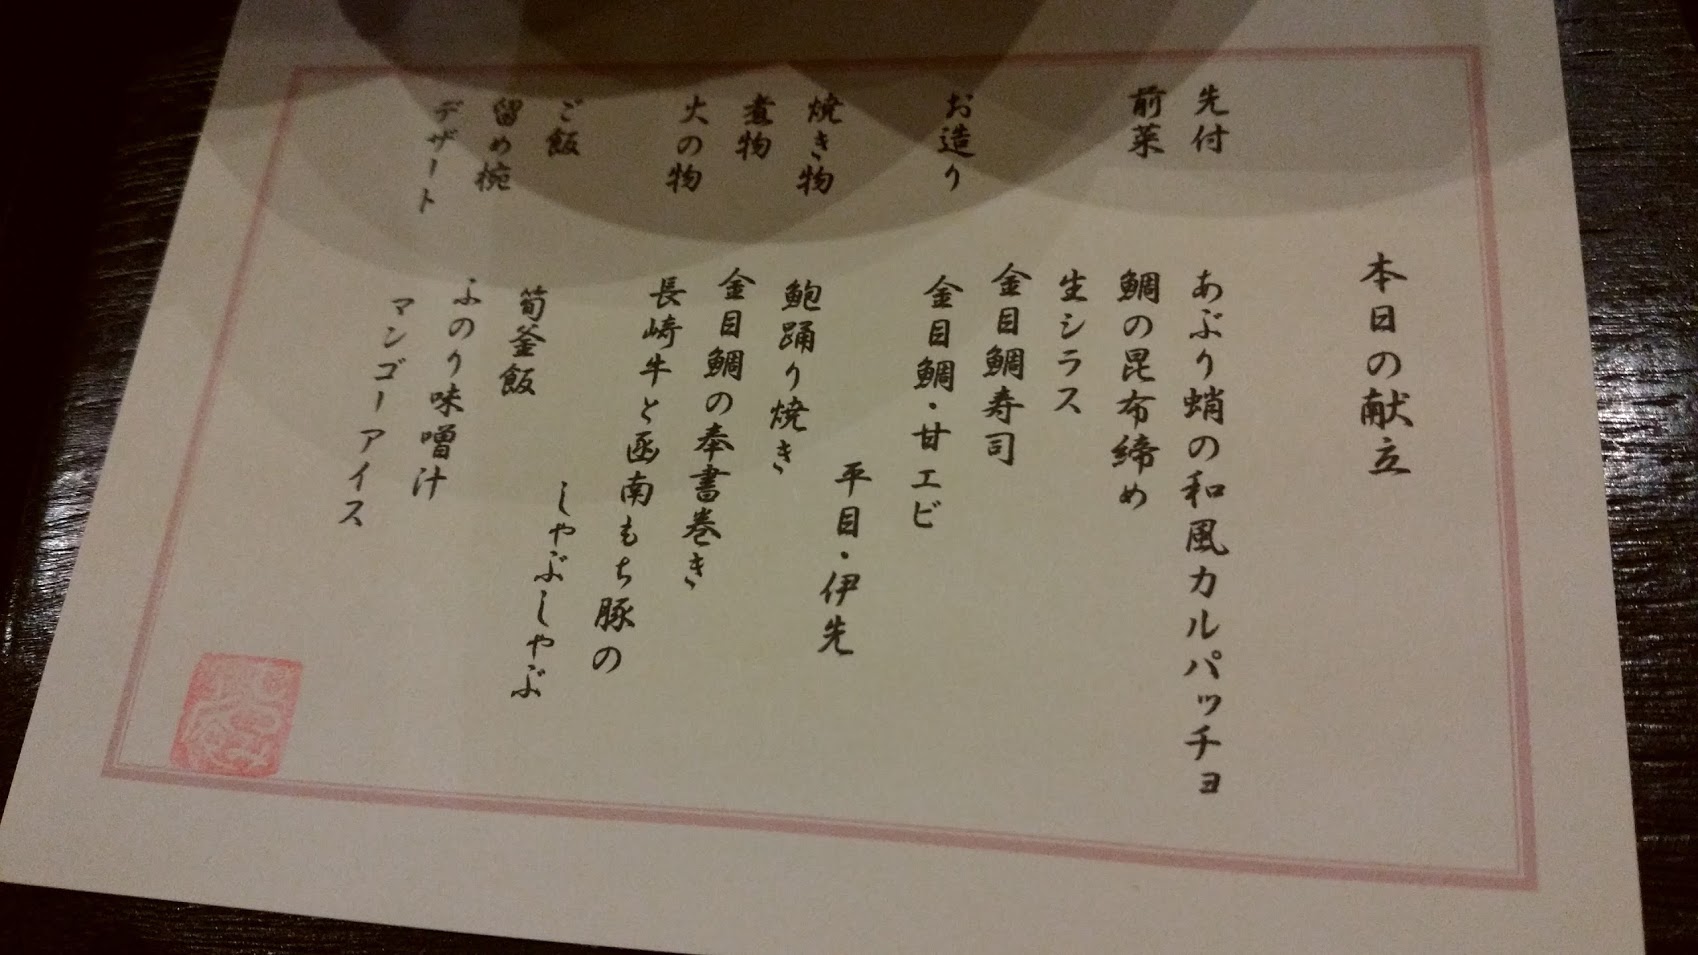 本日の献立
先付 あぶり蛸の和風カルパッチョ
前菜 鯛の昆布締め
生シラス
金目鯛寿司
お造り 金目鯛・甘エビ
平目・伊先
焼き物 鮑踊り焼き
煮物 金目鯛の奉書巻き
火の物 長崎牛と函南もち豚の
しゃぶしゃぶ
ご飯 筍釜飯
留め椀 ふのり味噌汁
デザート マンゴーアイス